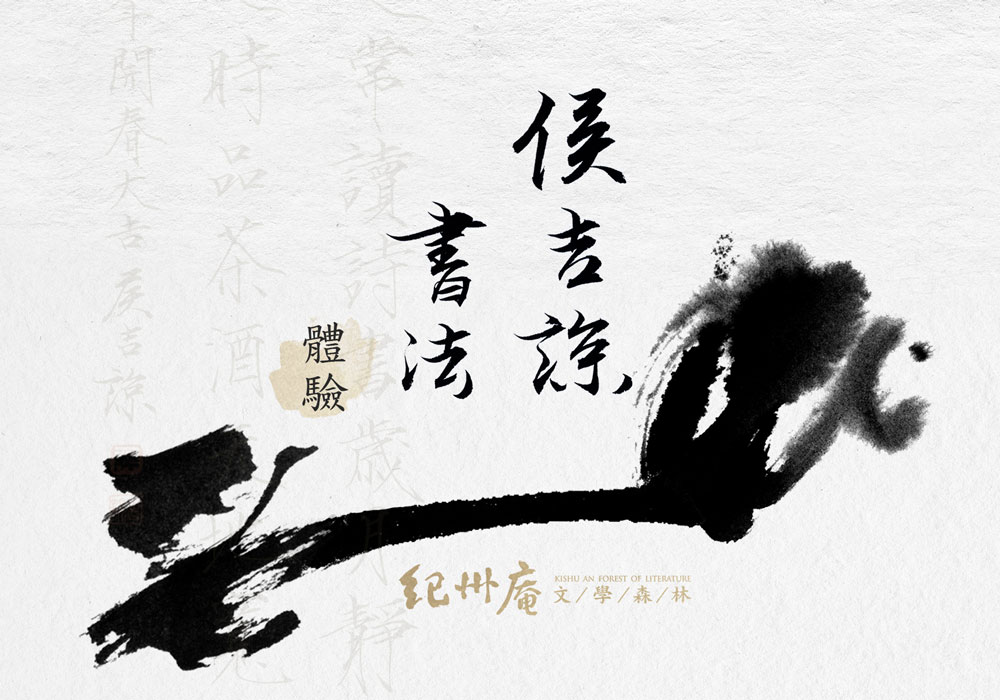 侯吉諒
書法
體驗
常讀詩書歲月靜
時品茶酒
開春大吉侯吉諒
紀州庵
KISHU AN FOREST OF LITERATURE
文/學/森/林